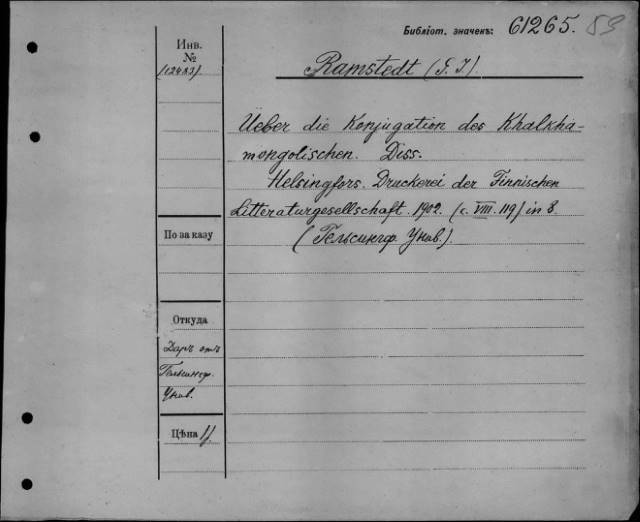 Библіот. значекъ: 61265. 89
Инв.
№
Ramstedt (G. J.)
Ueber die Konjugation des Khalkha-
mongolischen. Diss.
Helsingfors. Druckerei der Finnischen
Litteraturgesellschaft. 1902. (c. VIII. 119) in 8.
(Гельсингф. Унив.)
По заказу
Откуда
Даръ отъ
Гельсингф.
Унив.
Цѣна